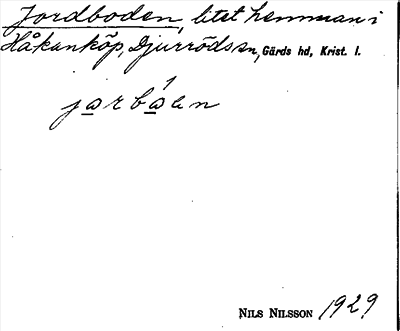 Jordboden, litet hemman i
Håkanköp, Djurröds sn, Gärds hd, Krist. l.
jarbáen
NILS NILSSON 1929